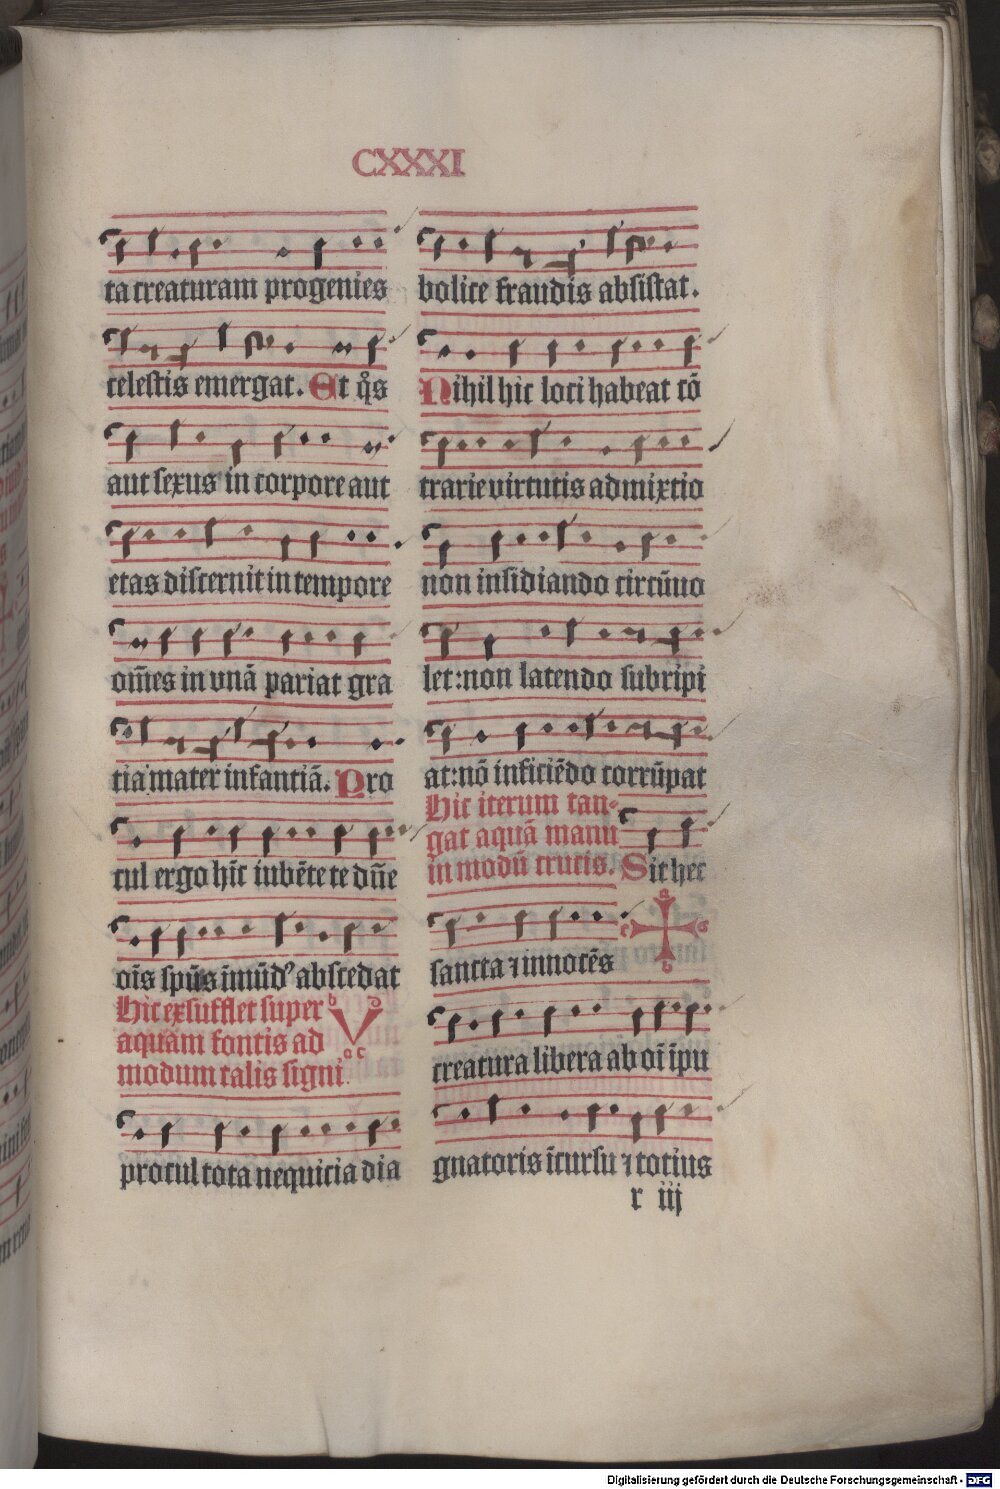 CXXXI
ta creaturam progenies
celestis emergat. Et q̊s
aut sexus in corpore aut
etas discernit in tempore
om̄es in vnā pariat gra
tia mater infantiā. Pro
cul ergo hīc iubēte te dn̄e
oīs spūs īmūdꝰ abscedat
Hic exsufflet super
aquam fontis ad
modum talis signi
b d
a c
procul tota nequicia dia
bolice fraudis absistat.
Nihil hic loci habeat cō
trarie virtutis admixtio
non insidiando circūuo
let: non latendo subripi
at: nō inficiēdo corrūpat
Hic iterum tan-
gat aquā manu
in modū crucis. Sit hec
a
c d
b
sancta ⁊ innocēs
creatura libera ab oī īpu
gnatoris īcursu ⁊ totius
r iij
Digitalisierung gefördert durch die Deutsche Forschungsgemeinschaft - DFG